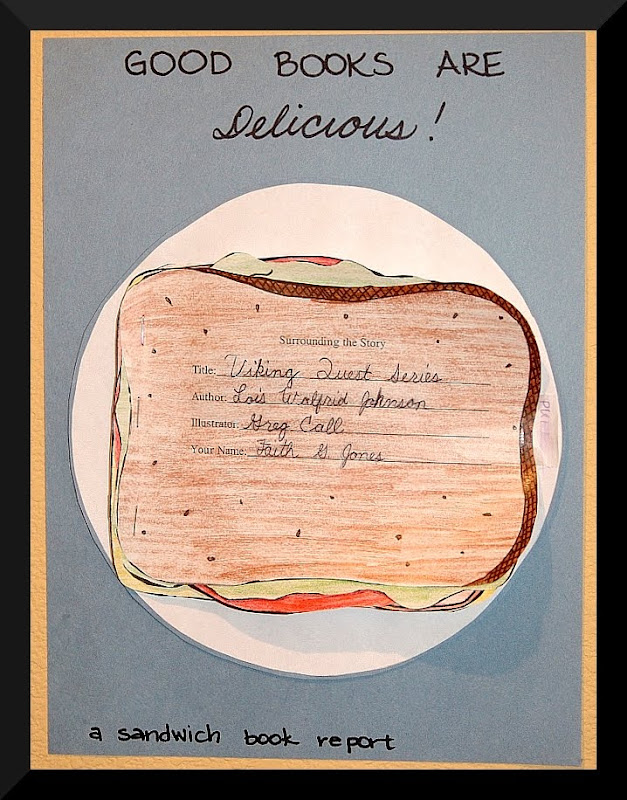 GOOD BOOKS ARE
Delicious!
Surrounding the Story
Title: Viking Quest Series
Author: Lois Walfrid Johnson
Illustrator: Greg Call
Your Name: Faith G. Jones
a sandwich book report